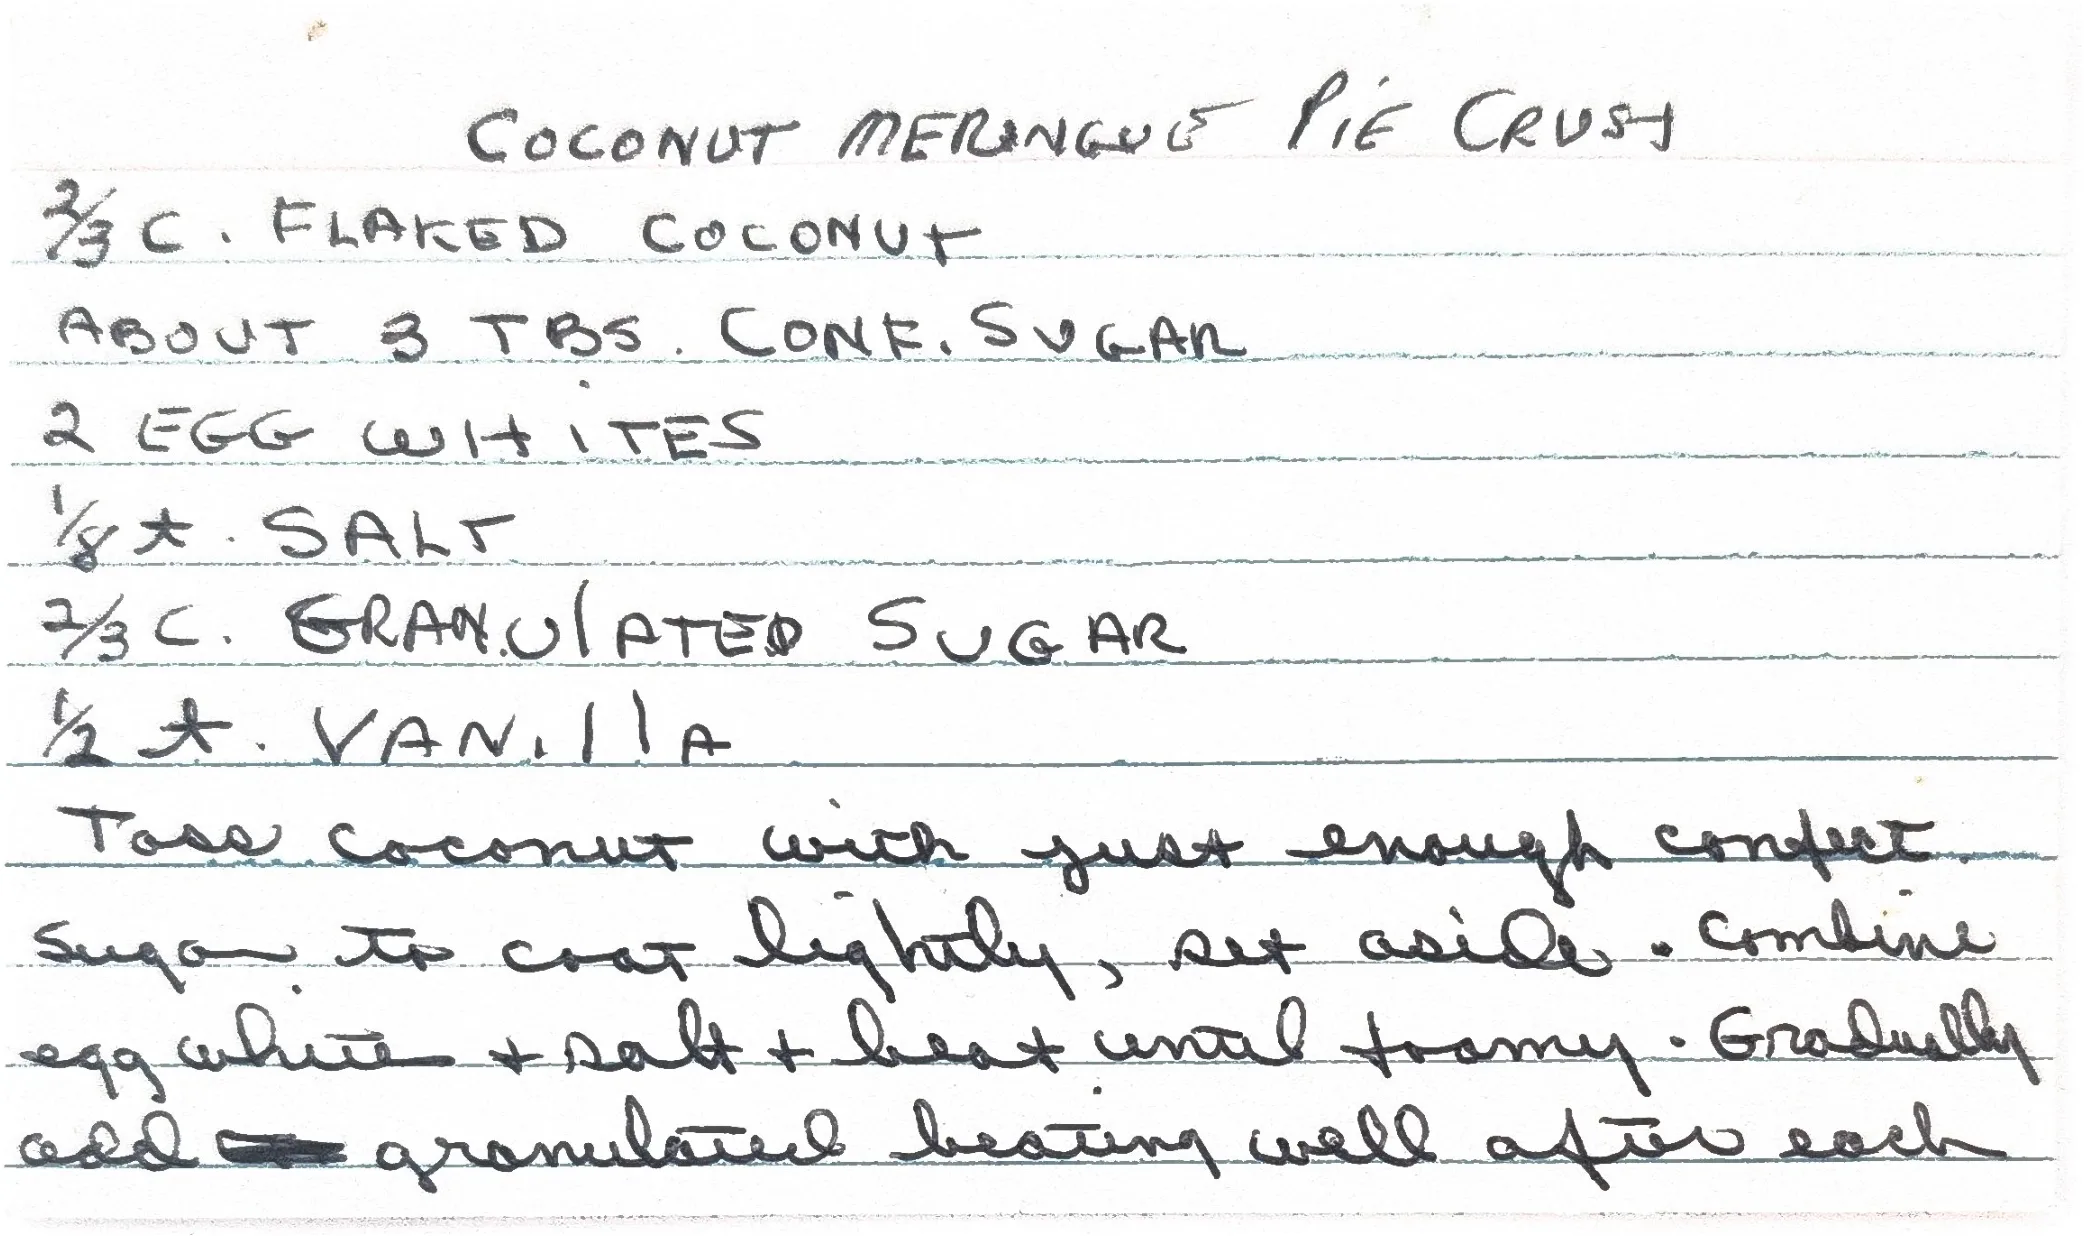 COCONUT MERINGUE PIE CRUST
2/3 C. FLAKED COCONUT
ABOUT 3 TBS. CONF. SUGAR
2 EGG WHITES
1/8 t. SALT
2/3 C. GRANULATED SUGAR
1/2 t. VANILLA
Toss coconut with just enough confect.
sugar to coat lightly, set aside. Combine
egg white + salt + beat until foamy. Gradually
add granulated beating well after each